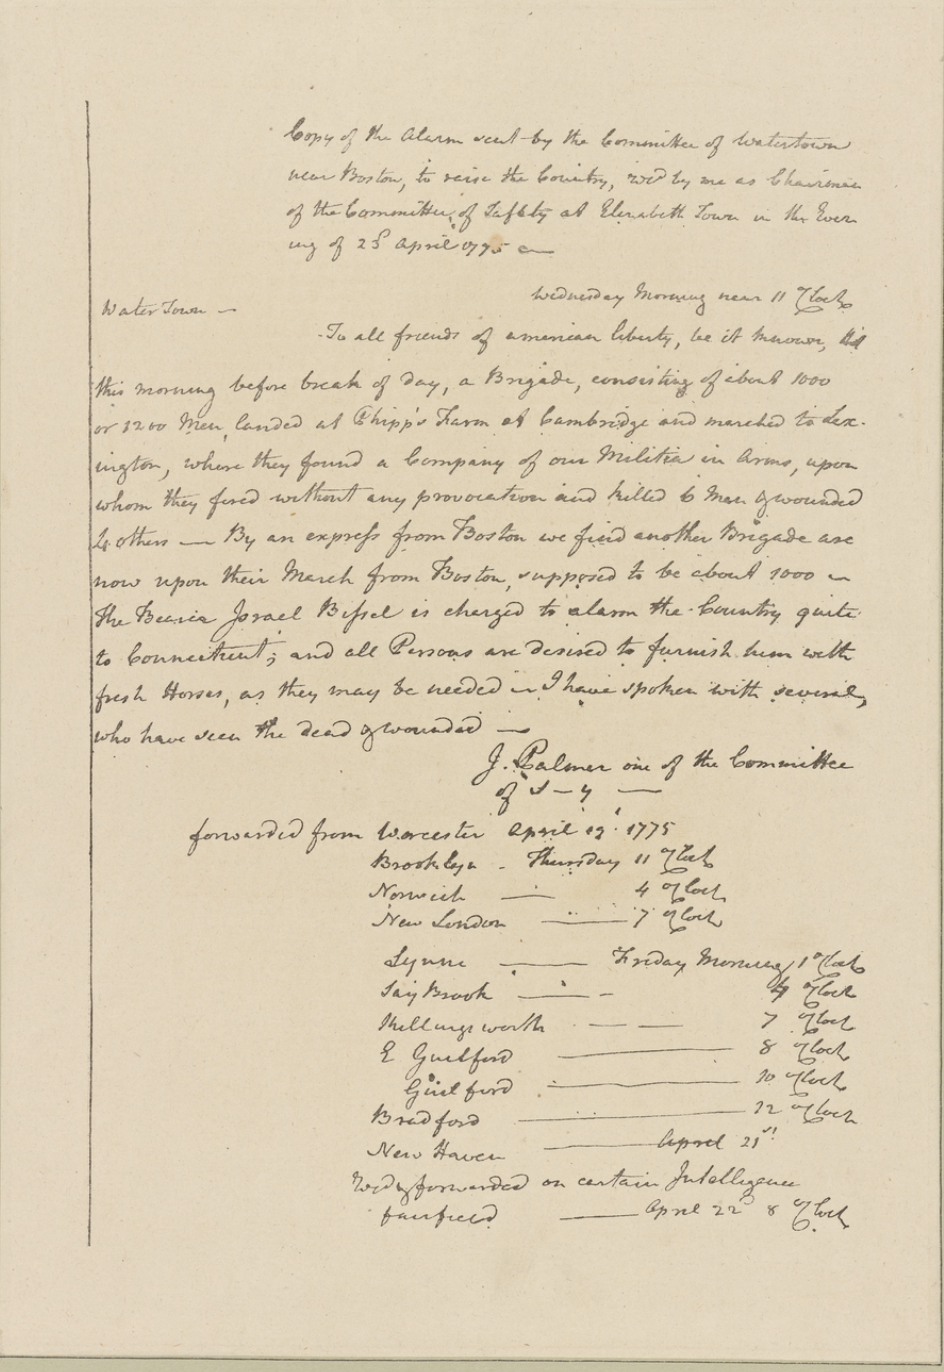 Copy of the Alarm sent by the Committee of Watertown
near Boston, to raise the Country, recd by me as Chairman
of the Committee of Saftety at Elizabeth Town in the Even
ing of 23d April 1775 —
Wednesday Morning near 11 oClock
Water Town —
To all friends of american liberty, be it known, that
this morning before break of day, a Brigade, consisting of about 1000
or 1200 Men, landed at Phipp's Farm at Cambridge and marched to Lex-
ington, where they found a Company of our Militia in Arms, upon
whom they fired without any provocation and killed 6 Men & wounded
4 others — By an express from Boston we find another Brigade are
now upon their March from Boston, supposed to be about 1000 —
the Bearer Israel Bissel is charged to alarm the Country quite
to Connecticut; and all Persons are desired to furnish him with
fresh Horses, as they may be needed — I have spoken with several,
who have seen the dead & wounded —
J. Palmer one of the Committee
of S—y —
forwarded from Worcester April 19. 1775
Brooklyn - Thursday 11 oClock
Norwich — 4 oClock
New London — 7 oClock
Lynne — Friday Morning 1 oClock
Say Brook — 4 oClock
Killingsworth — 7 oClock
E Guilford — 8 oClock
Guilford — 10 oClock
Bradford — 12 oClock
New Haven — April 21st
Recd & forwarded on certain Intelligence
fairfield — April 22d 8 oClock